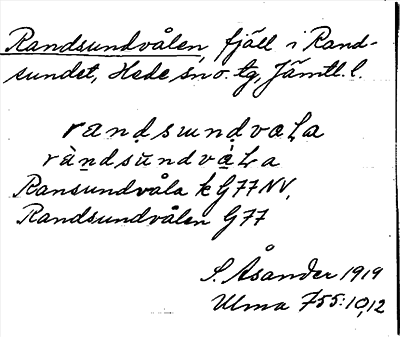 Randsundvålen, fjäll i Rand-
sundet, Hede sn o. tg, Jämtl. l.
randsundvaLa
ràndsūndváLa
Ransundvåla k G77NV,
Randsundvålen G77
S. Åsander 1919
Ulma 755:10,12